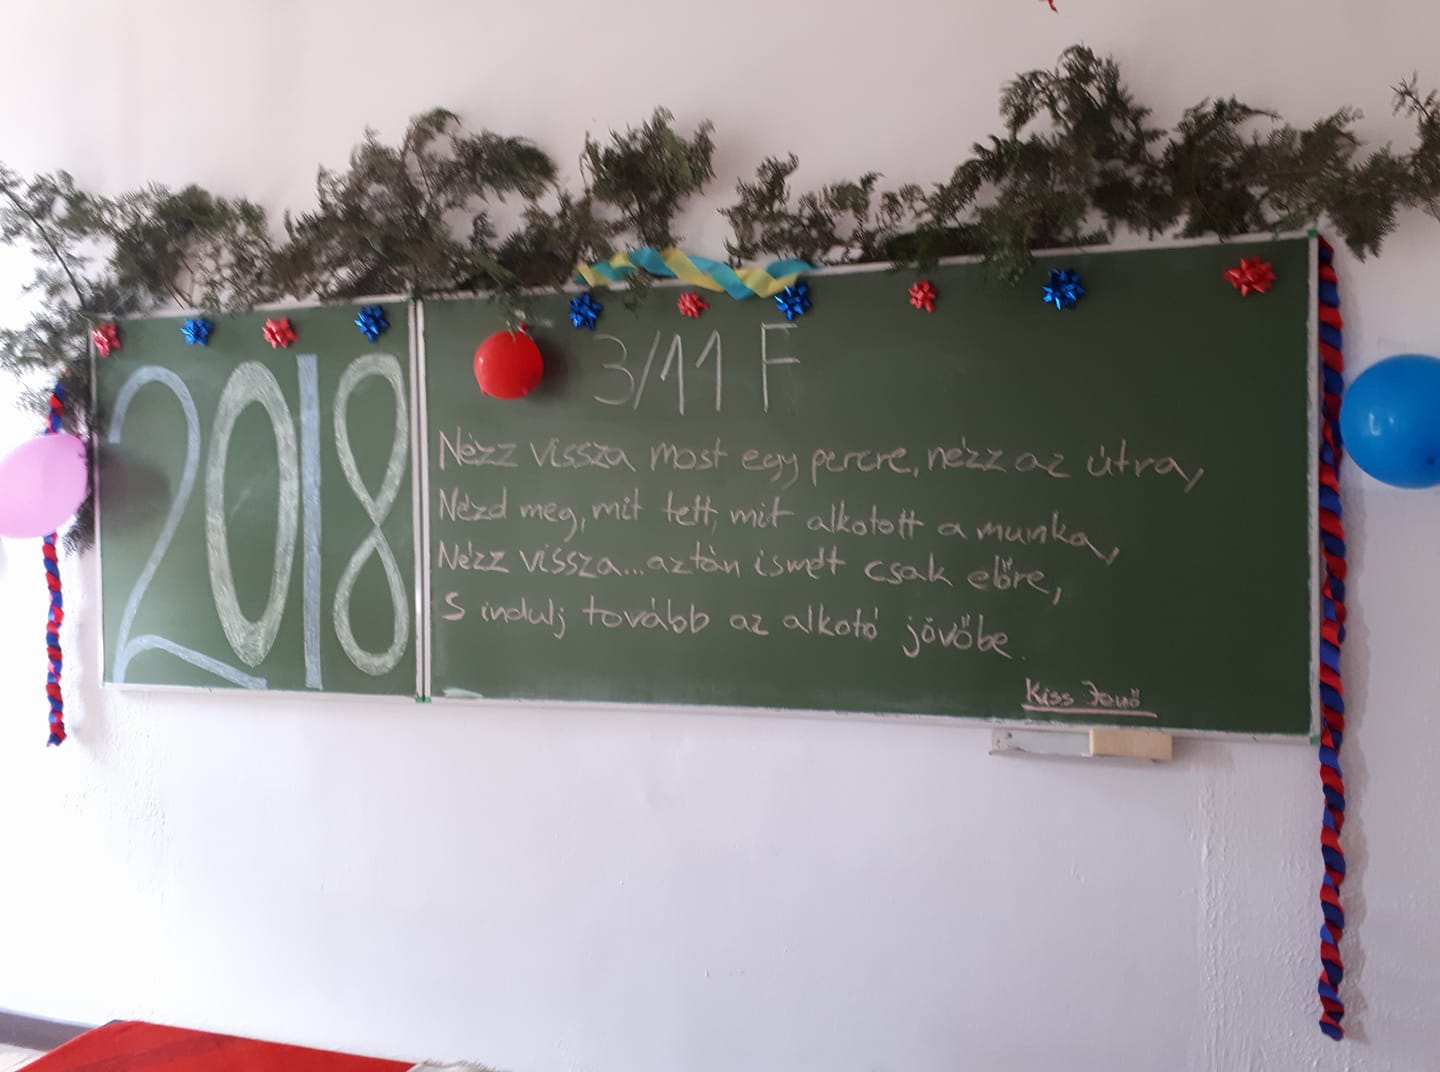 2018
3/11 F
Nézz vissza most egy percre, nézz az útra,
Nézd meg, mit tett, mit alkotott a munka,
Nézz vissza...aztán ismét csak előre,
S indulj tovább az alkotó jövőbe.
Kiss Jenő